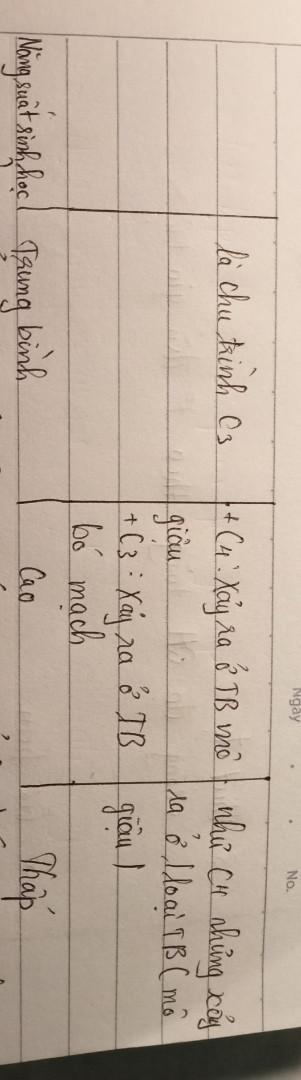 Ngày No.
là chu trình C3
+ C4: Xảy ra ở TB mô
giậu
+ C3: Xảy ra ở TB
bó mạch
như C4 nhưng xảy
ra ở 1 loại TB (mô
giậu)
Năng suất sinh học
Trung bình
Cao
Thấp